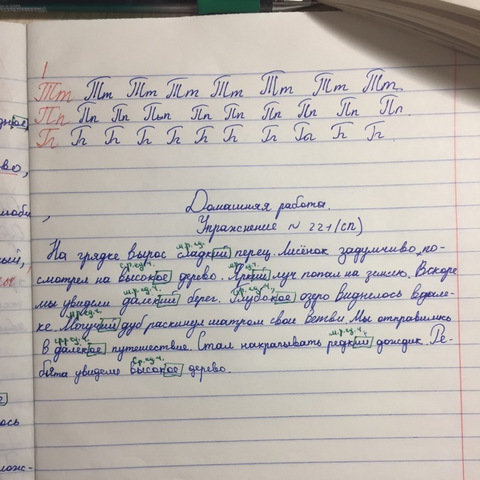 Тт Тт Тт Тт Тт Тт Тт Тт
Пп Пп Пп Пп Пп Пп Пп Пп Пп Пп
Домашняя работа.
Упражнение № 221(СП)
м.р.ед.ч.
На грядке вырос сладкий перец. Лисёнок задумчиво по-
ср.ед.ч. м.р.ед.ч.
смотрел на высокое дерево. Яркий лук попал на Вскоре
м.р.ед.ч. ср.ед.ч.
мы увидели далёкий берег. Глубокое озеро виднелось вдале-
м.р.ед.ч.
ке. Могучий дуб раскинул шатром свои ветви. Мы отправились
ср.ед.ч. м.р.ед.ч.
в далёкое путешествие. Стал накрапывать редкий дождик. Ре-
ср.ед.ч.
бята увидели высокое дерево.